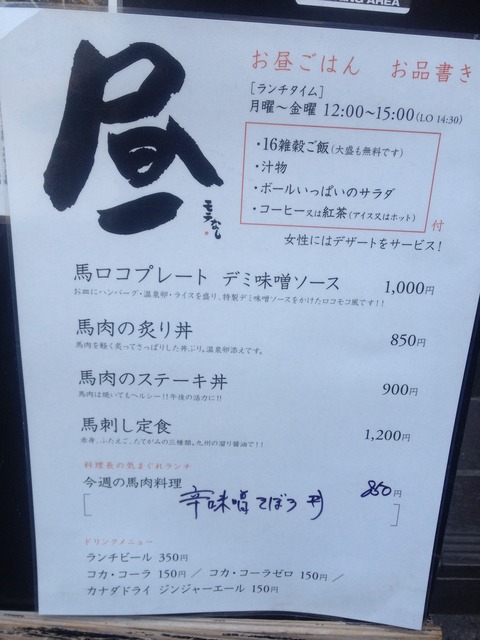 ING AREA
お昼ごはん お品書き
昼
モテなし
[ランチタイム]
月曜〜金曜 12:00〜15:00(LO 14:30)
・16雑穀ご飯(大盛も無料です)
・汁物
・ボールいっぱいのサラダ
・コーヒー又は紅茶(アイス又はホット)
付
女性にはデザートをサービス!
馬ロコプレート デミ味噌ソース 1,000円
お皿にハンバーグ・温泉卵・ライスを盛り、特製デミ味噌ソースをかけたロコモコ風です!!
馬肉の炙り丼 850円
馬肉を軽く炙ってさっぱりした丼ぶり。温泉卵添えです。
馬肉のステーキ丼 900円
馬肉は焼いてもヘルシー!!午後の活力に!!
馬刺し定食 1,200円
赤身、ふたえご、たてがみの三種類。九州の溜り醤油で!!
料理長の気まぐれランチ
今週の馬肉料理 850円
[辛味噌そぼろ丼]
ドリンクメニュー
ランチビール 350円
コカ・コーラ 150円 / コカ・コーラゼロ 150円 /
カナダドライ ジンジャーエール 150円